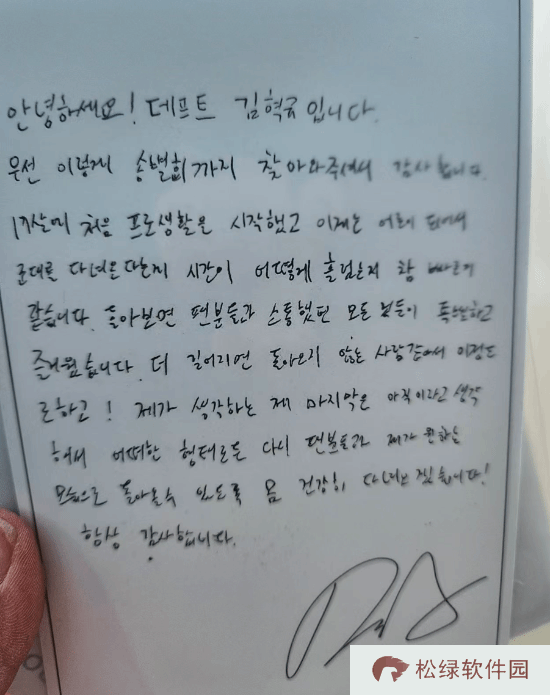 안녕하세요! 데프트 김혁규입니다.
우선 이렇게 송별회까지 찾아와주셔서 감사합니다.
17살에 처음 프로생활을 시작했고 이제는 어른이 되어서
군대를 다녀온다는지 시간이 어떻게 흘렀는지 참 빠른거
같습니다. 돌아보면 팬분들과 소통했던 모든 것들이 특별하고
즐거웠습니다. 더 길어지면 돌아오지 않는 사람같아서 이정도
로하고! 제가 생각하는 제 마지막은 아직이라고 생각
해서 어떠한 형태로든 다시 팬분들과 제가 원하는
모습으로 돌아올수 있도록 몸 건강히 다녀오겠습니다!
항상 감사합니다.
松绿软件园